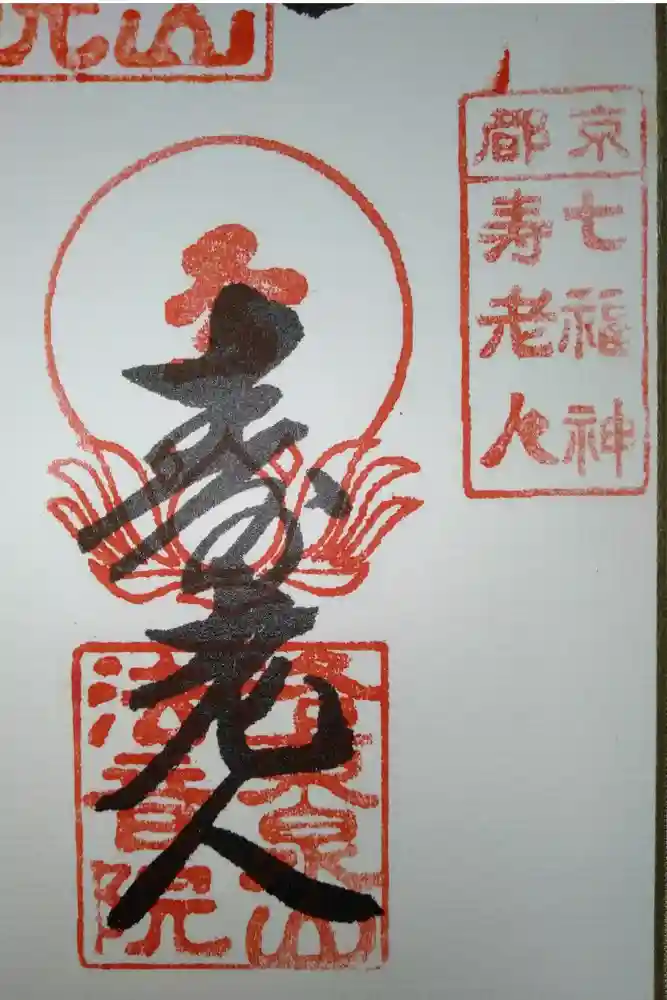 京都
七福神
寿老人
寿老人
泉山
法音院